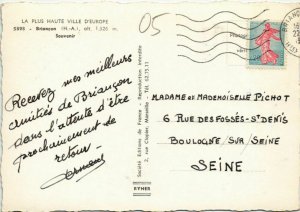 LA PLUS HAUTE VILLE D'EUROPE
5893 - Briançon (H.-A.), alt. 1.326 m.
Souvenir
05
Recevez mes meilleurs
amitiés de Briançon
dans l'attente d'être
prochainement de
retour -
Armand
Société Editions de France - Reproduction interdite
2, rue Clapier, Marseille - Tél. 62.75.11
RYNER
BRIANÇON
MADAME ET MADEMOISELLE PICHOT
6 RUE DES FOSSÉS-ST DENIS
BOULOGNE SUR SEINE
SEINE